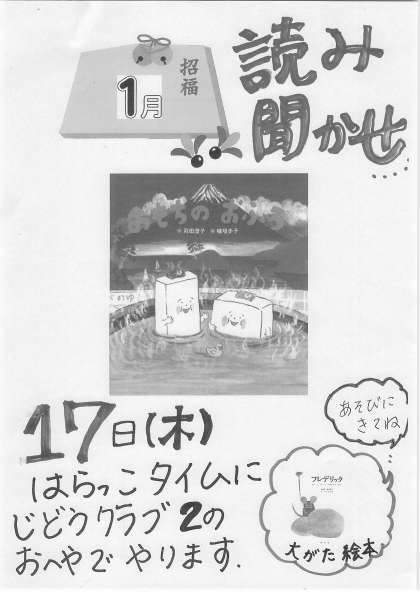 招福
1月
読み
聞かせ...
おもちの おふろ
苅田澄子 植垣歩子
のゆ
17日(木)
はらっこ タイムに
じどうクラブ 2の
おへやで やります.
あそびに
きてね
フレデリック
大がた 絵本